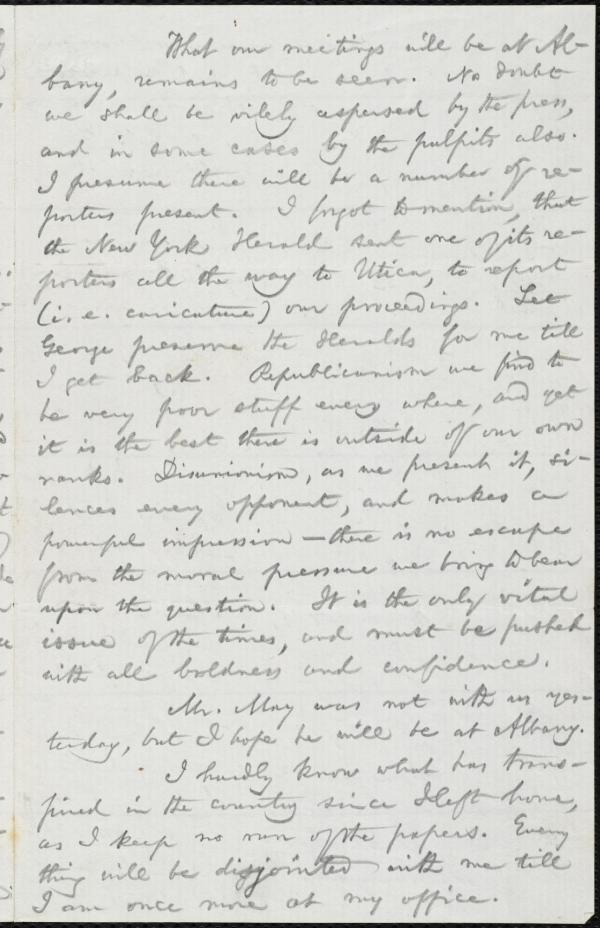 What our meetings will be at Al-
bany, remains to be seen. No doubt
we shall be vilely aspersed by the press,
and in some cases by the pulpits also.
I presume there will be a number of re-
porters present. I forgot to mention, that
the New York Herald sent one of its re-
porters all the way to Utica, to report
(i. e. caricature) our proceedings. Let
George preserve the Heralds for me till
I get back. Republicanism we find to
be very poor stuff every where, and yet
it is the best there is outside of our own
ranks. Disunionism, as we present it, si-
lences every opponent, and makes a
powerful impression — there is no escape
from the moral pressure we bring to bear
upon the question. It is the only vital
issue of the times, and must be pushed
with all boldness and confidence.
Mr. May was not with us yes-
terday, but I hope he will be at Albany.
I hardly know what has trans-
pired in the country since I left home,
as I keep no run of the papers. Every
thing will be disjointed with me till
I am once more at my office.